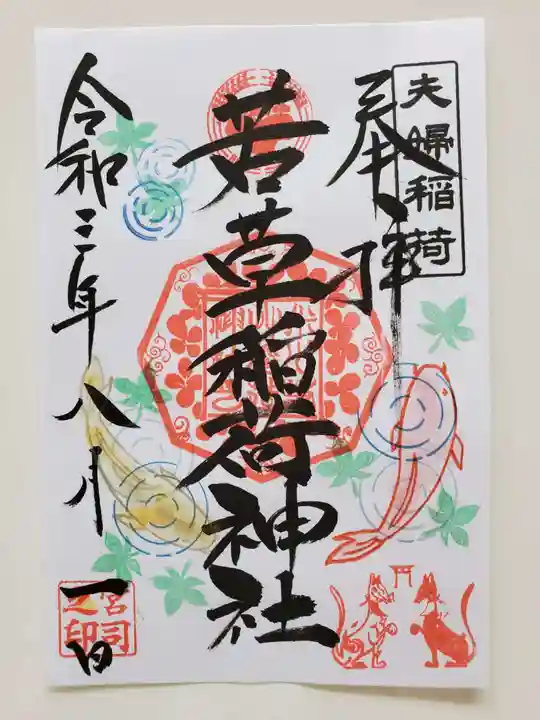 夫婦稲荷
奉拝
若草稲荷神社
令和三年八月一日
宮司之印